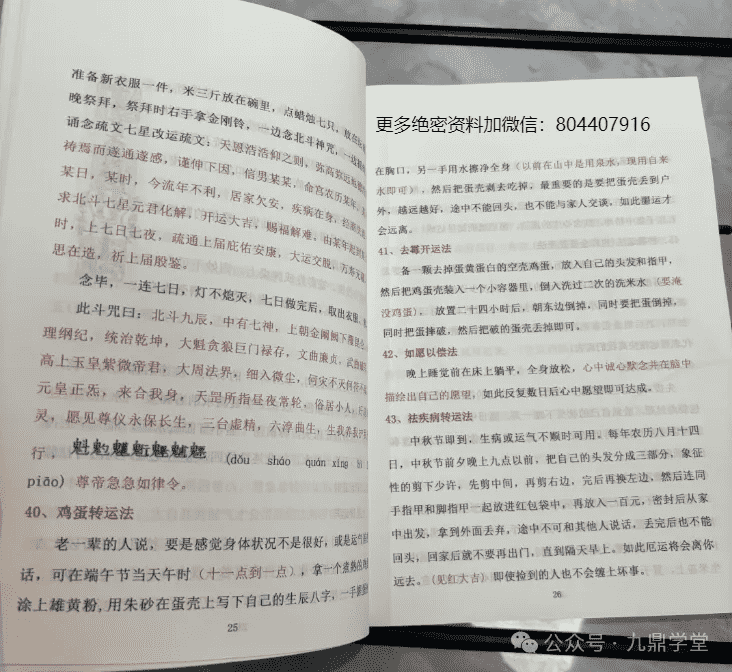 准备新衣服一件，米三斤放在碗里，点蜡烛七只，
晚祭拜，祭拜时右手拿金刚铃，一边念北斗神咒，
诵念疏文七星改运疏文：天恩浩浩仰之则，弥高
祷焉而遂通遂感，谨伸下因，信男某某，命宫农历某年，
某日，某时，今流年不利，居家欠安，疾病在身，
求北斗七星元君化解，开运大吉，赐福解难。由某年
时，上七日七夜，疏通上届庇佑安康，大运交脱，
思在造，祈上届殷鉴。
念毕，一连七日，灯不熄灭，七日做完后，取出
此斗咒曰：北斗九辰，中有七神，上朝金阙
理纲纪，统治乾坤，大魁贪狼巨门禄存，文曲廉贞，
高上玉皇紫微帝君，大周法界，细入微尘，何灾不灭
元皇正炁，来合我身，天罡所指昼夜常轮，俗居小人，
灵，愿见尊仪永保长生，三台虚精，六淳曲生，生我养我
行，魁𩲃䰢魓魒 (dǒu sháo quán xíng bì
piāo) 尊帝急急如律令。
40、鸡蛋转运法
老一辈的人说，要是感觉身体状况不是很好，或是运气
话，可在端午节当天午时（十一点到一点），拿一个
涂上雄黄粉，用朱砂在蛋壳上写下自己的生辰八字，一手
25
更多绝密资料加微信：804407916
在胸口，另一手用水擦净全身（以前在山中是用泉水，现用自来
水即可），然后把蛋壳剥去吃掉，最重要的是要把蛋壳丢到户
外，越远越好，途中不能回头，也不能与家人交谈，如此噩运才
会远离。
41、去霉开运法
备一颗去掉蛋黄蛋白的空壳鸡蛋，放入自己的头发和指甲，
然后把鸡蛋壳装入一个小容器里，倒入洗过二次的洗米水（要淹
没鸡蛋），放置二十四小时后，朝东边倒掉，同时要把蛋倒掉，
同时把蛋摔破，然后把破的蛋壳丢掉即可。
42、如愿以偿法
晚上睡觉前在床上躺平，全身放松，心中诚心默念并在脑中
描绘出自己的愿望，如此反复数日后心中愿望即可达成。
43、祛疾病转运法
中秋节即到，生病或运气不顺时可用。每年农历八月十四
日，中秋节前夕晚上九点以前，把自己的头发分成三部分，象征
性的剪下少许，先剪中间，再剪右边，完后再换左边，然后连同
手指甲和脚指甲一起放进红包袋中，再放入一百元，密封后从家
中出发，拿到外面丢弃，途中不可和其他人说话，丢完后也不能
回头，回家后就不要再出门，直到隔天早上。如此厄运将会离你
远去。（见红大吉）即使捡到的人也不会缠上坏事。
26
公众号·九鼎学堂